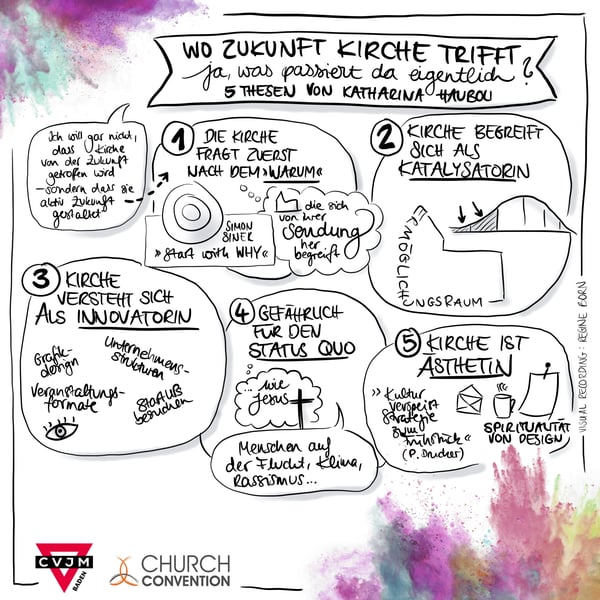 WO ZUKUNFT KIRCHE TRIFFT
ja, was passiert da eigentlich?
5 THESEN VON KATHARINA HAUBOLD
Ich will gar nicht,
dass Kirche
von der Zukunft
getroffen wird
– sondern dass sie
aktiv Zukunft
gestaltet
1 DIE KIRCHE
FRAGT ZUERST
NACH DEM »WARUM«
SIMON
SINEK
»Start with WHY«
die sich
von ihrer
Sendung
her
begreift
2 KIRCHE BEGREIFT
SICH ALS
KATALYSATORIN
ERMÖGLICH
UNGSRAUM
3 KIRCHE
VERSTEHT SICH
ALS INNOVATORIN
Grafik-
design
Unternehmens-
strukturen
Veranstaltungs-
formate
Startups
besuchen
4 GEFÄHRLICH
FÜR DEN
STATUS QUO
...wie
Jesus
Menschen auf
der Flucht, Klima,
Rassismus...
5 KIRCHE IST
ÄSTHETIN
»Kultur
verspeist
Strategie
zum
Frühstück«
(P. Drucker)
SPIRITUALITÄT
VON DESIGN
VISUAL RECORDING: REGINE BORN
CVJM
BADEN
CHURCH
CONVENTION